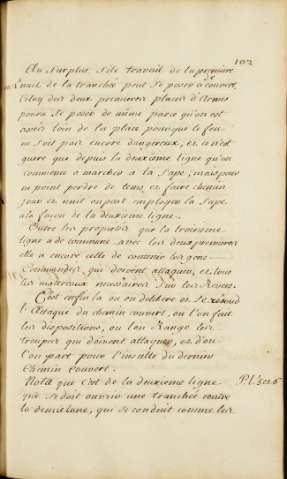 102
Au Surplus, Si le travail de la premiere
nuit de la tranchée peut Se poser à couvert,
Celuy des deux premieres places d'Armes
poura Se poser de même parce qu'on est
assés loin de la place pour que le feu
ne Soit pas encore dangereux, et ce n'est
guere que depuis la deuxieme ligne qu'on
commence a marcher a la Sape, mais pour
ne point perdre de tems, et faire chemin
jour et nuit on peut employer la Sape
a la façon de la deuxieme ligne.
Outre les proprietés que la troisieme
ligne a de commune avec les deux premieres
elle a encore celle de contenir les gens
Commandés qui doivent attaquer, et tous
les materiaux necessaires Sur les Revers.
C'est enfin la ou on delibere et Se resoud
l'Attaque du chemin couvert, ou l'on fait
les dispositions, ou l'on Range les
troupes qui doivent attaquer, et d'ou
l'on part pour l'insulte du dernier
Chemin Couvert.
Nota que C'est de la deuxieme ligne
que se doit ouvrir une tranchée contre
la demie lune, qui se conduit comme les